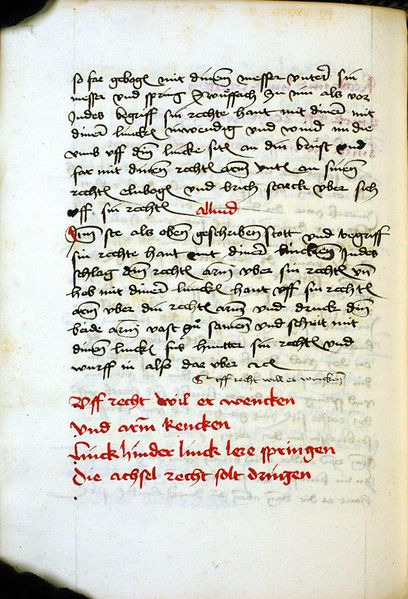 so far gebogē mit dinem messer vnter sin
messer vnd spring zwifach zu im als vor
Indes begriff sin rechte hant mit diner mit
diner lincken inwendig vnd wind im die
vmb vff din lincke sitē an din brust vnd
far mit dinem rechtē arm vntē an sinen
rechtē elnbogē vnd brich starck vber sich
vff sin rechtē Aliud
Item ste als oben geschriben stott vnd begriff
sin rechte hant mit diner lincken Indes
schlag din rechtē arm vber sin rechtē vñ
heb mit diner linckē hant vff sin rechtē
arm vber din rechtē arm vnd druck din
beide arm vast zu samen vnd schritt mit
dinem linckē fus hinder sin rechtē vnd
wurff in also dar vber rc
Er vff recht will er wencken
Vff recht wil er wencken
Vnd arm rencken
Linck hinder linck lere springen
die achsel recht solt dringen